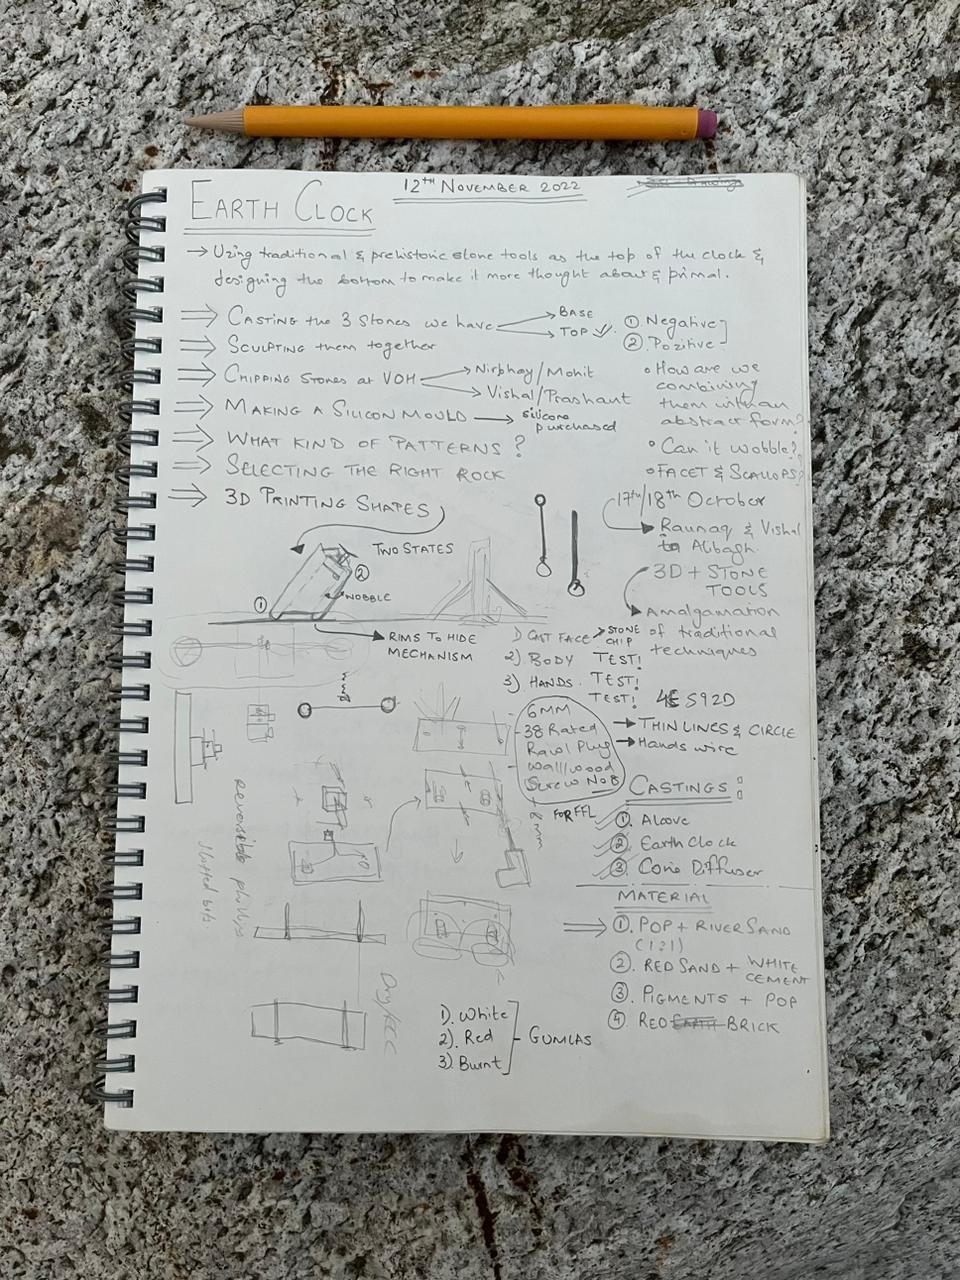 EARTH CLOCK
12TH NOVEMBER 2022
→ Using traditional & prehistoric stone tools as the top of the clock &
designing the bottom to make it more thought about & primal.
⇒ CASTING the 3 Stones we have → BASE
→ TOP ✓
① Negative
② Pozitive
⇒ SCULPTING them together
⇒ CHIPPING STONES at VOH → Nirbhay/Mohit
→ Vishal/Prashant
⇒ MAKING A SILICON MOULD → silicone
purchased
⇒ WHAT KIND OF PATTERNS?
⇒ SELECTING THE RIGHT ROCK
⇒ 3D PRINTING SHAPES
• How are we
combining
them within
abstract form?
• Can it wobble?
• FACET & SCALLOPS?
17th/18th October
Raunaq & Vishal
to Alibagh.
3D + STONE
TOOLS
Amalgamation
of traditional
techniques
TWO STATES
①
②
WOBBLE
→ RIMS TO HIDE
MECHANISM
1) CAST FACE > STONE
CHIP
2) BODY TEST!
3) HANDS. TEST!
TEST!
S92D
6MM
38 Rated
Rawl Plug
Wall/wood
Screw No 8
FOR FFL
8mm
→ THIN LINES & CIRCLE
→ Hands wire
CASTINGS:
①. Alcove
②. Earth Clock
③. Cone Diffuser
MATERIAL
⇒ ①. POP + RIVER SAND
(1:1)
②. RED SAND + WHITE
CEMENT
③. PIGMENTS + POP
④. RED BRICK
reversible
Slotted bits.
1). White
2). Red
3) Burnt
GUMLAS